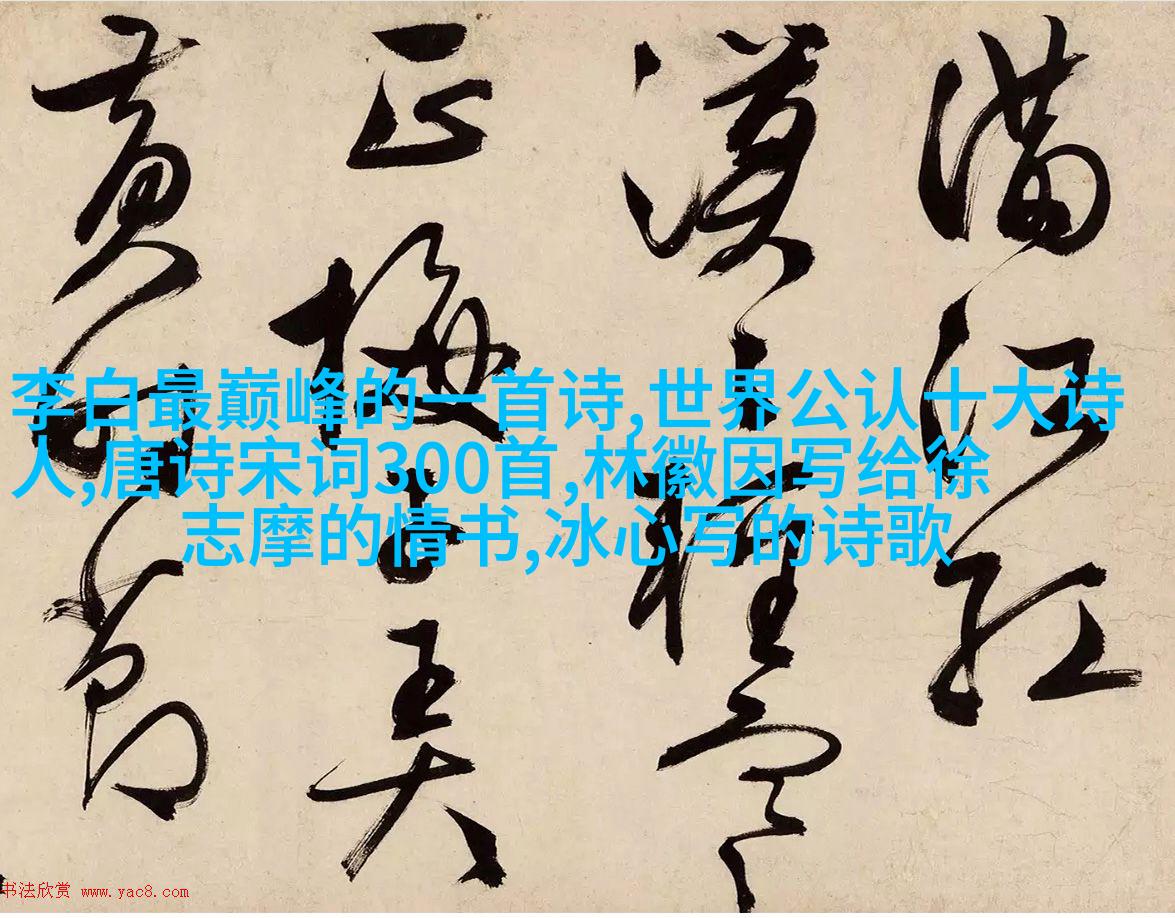 滿江紅
漠々輕寒
正梅子弄
黃時節
李白最巅峰的一首诗,世界公认十大诗
人,唐诗宋词300首,林徽因写给徐
志摩的情书,冰心写的诗歌
书法欣赏 www.yac8.com